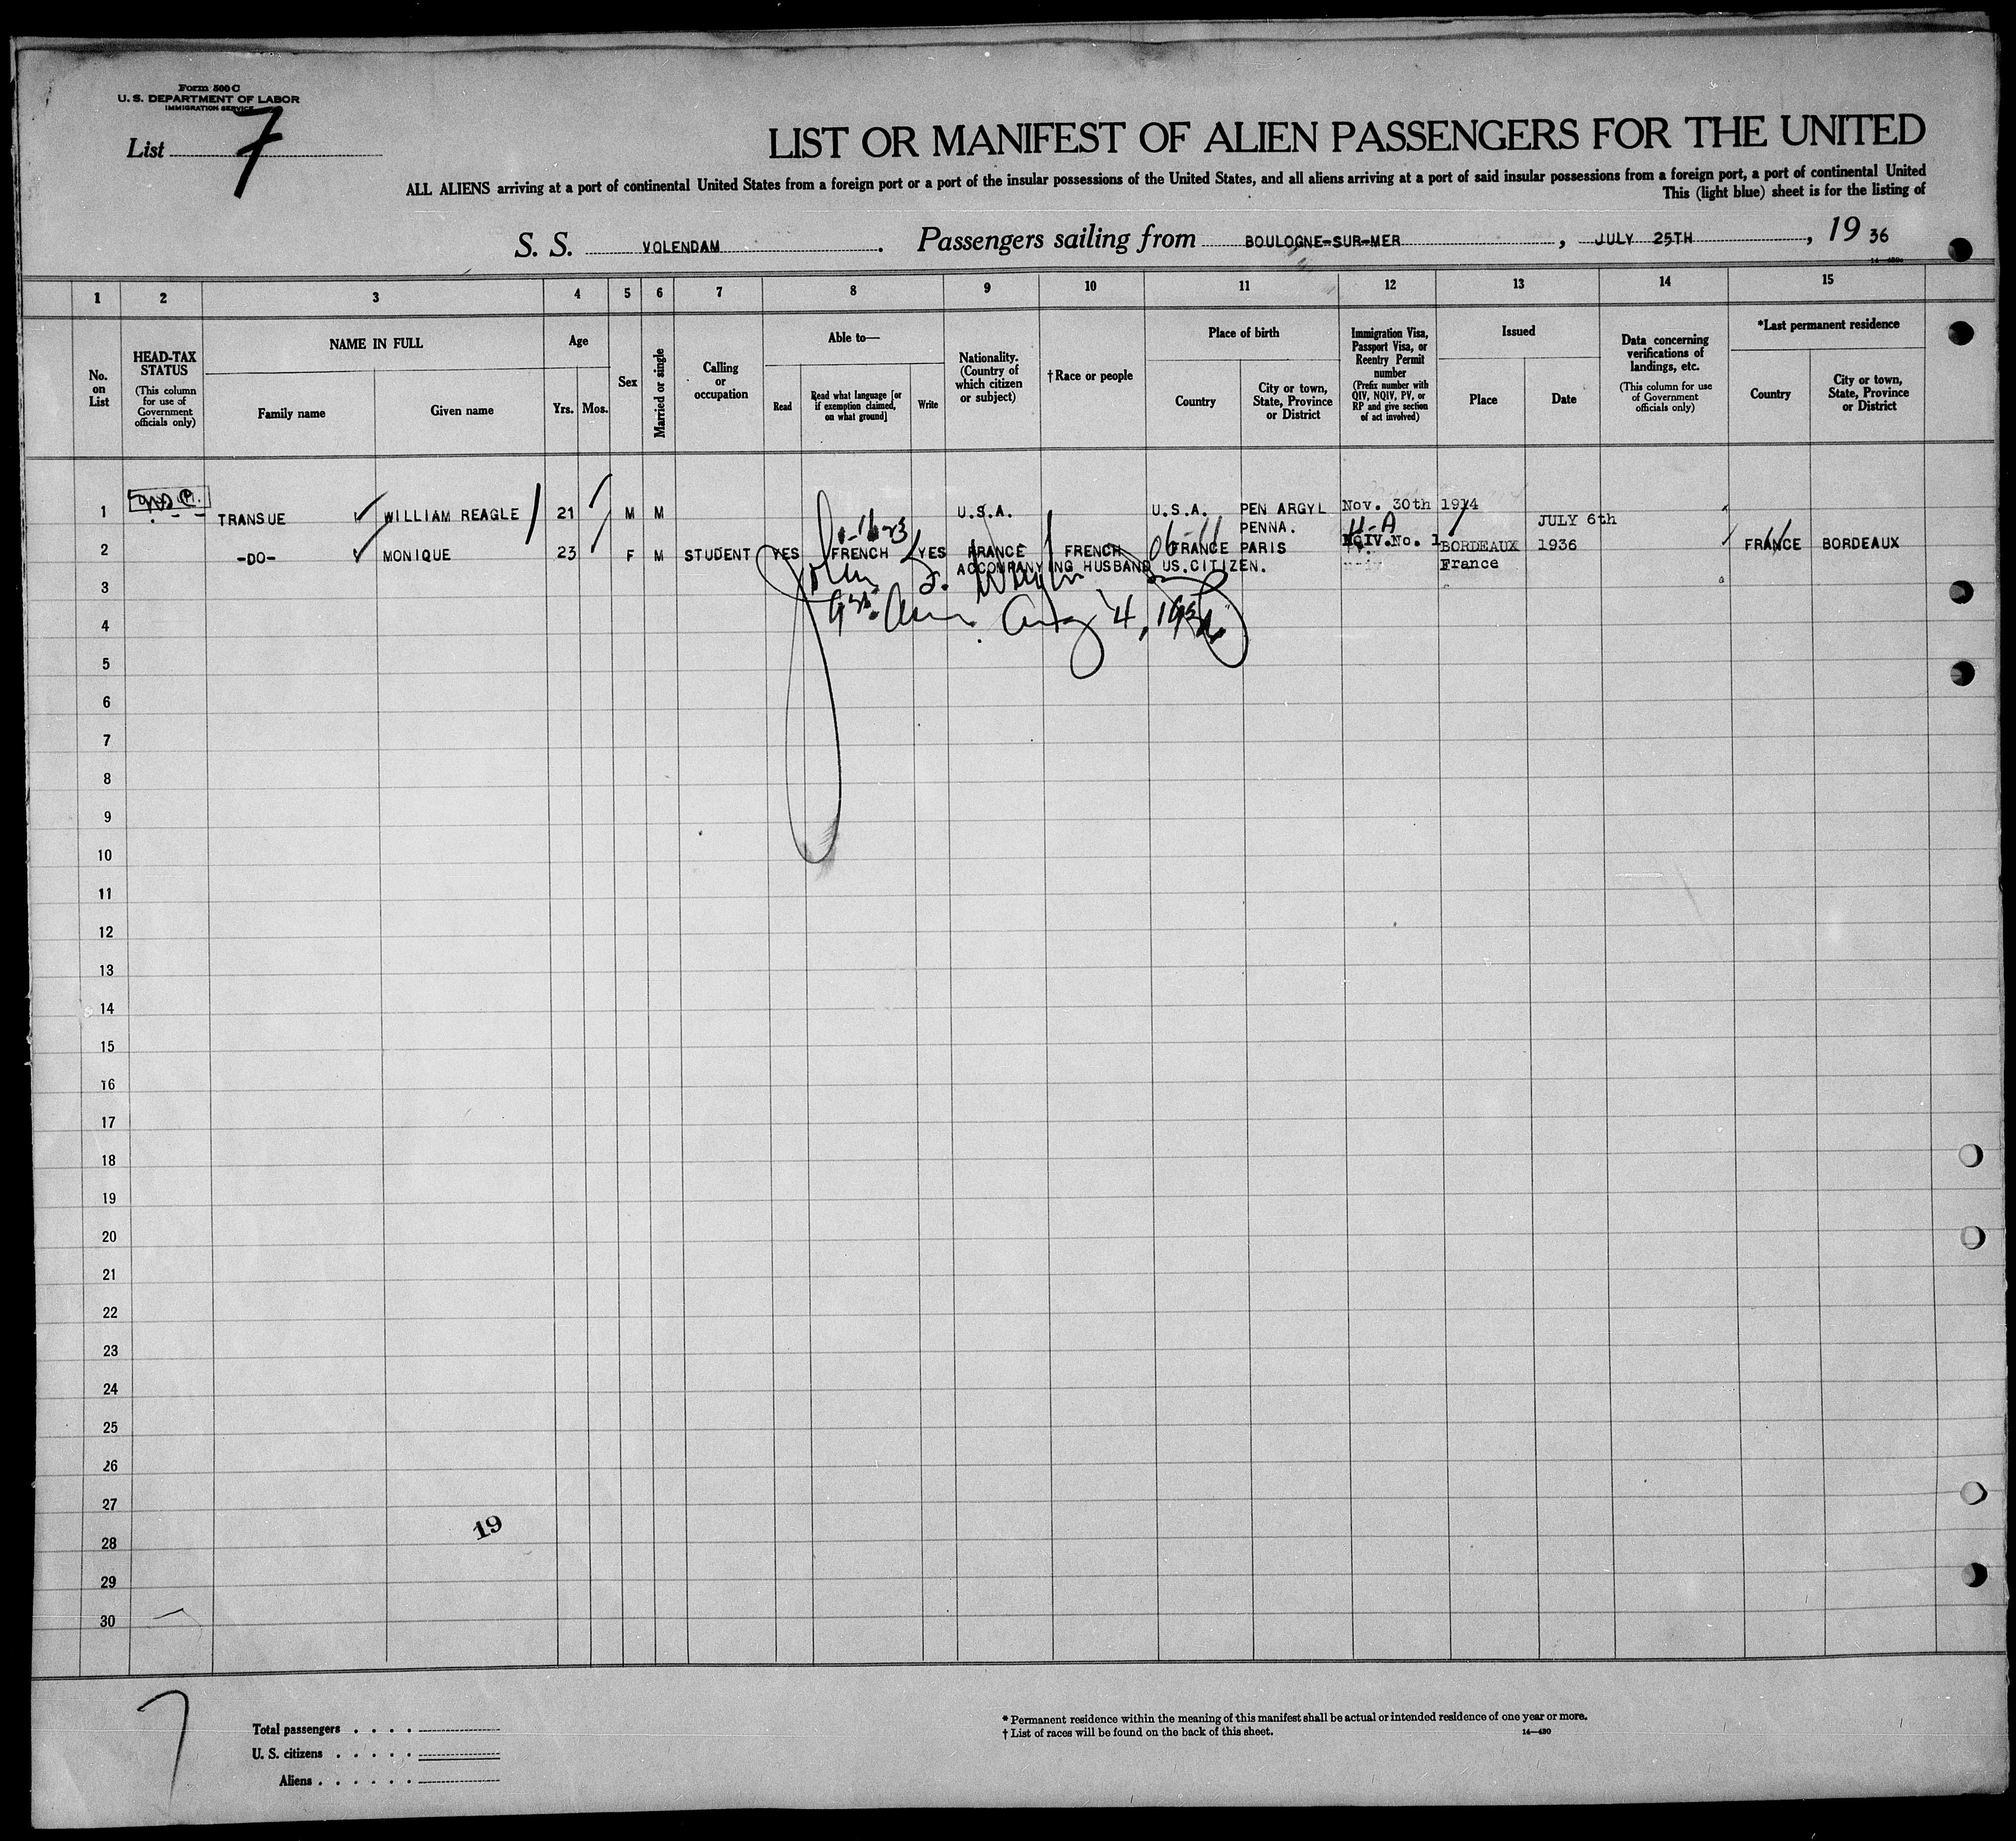 Form 500 C
U. S. DEPARTMENT OF LABOR
IMMIGRATION SERVICE
List 7
LIST OR MANIFEST OF ALIEN PASSENGERS FOR THE UNITED
ALL ALIENS arriving at a port of continental United States from a foreign port or a port of the insular possessions of the United States, and all aliens arriving at a port of said insular possessions from a foreign port, a port of continental United
This (light blue) sheet is for the listing of
S. S. VOLENDAM. Passengers sailing from BOULOGNE-SUR-MER, JULY 25TH, 19 36
1 2 3 4 5 6 7 8 9 10 11 12 13 14 15
No. on List
HEAD-TAX STATUS
(This column for use of Government officials only)
NAME IN FULL
Family name
Given name
Age
Yrs. Mos.
Sex
Married or single
Calling or occupation
Able to—
Read
Read what language [or if exemption claimed, on what ground]
Write
Nationality. (Country of which citizen or subject)
†Race or people
Place of birth
Country
City or town, State, Province or District
Immigration Visa, Passport Visa, or Reentry Permit number
(Prefix number with QIV, NQIV, PV, or RP and give section of act involved)
Issued
Place
Date
Data concerning verifications of landings, etc.
(This column for use of Government officials only)
*Last permanent residence
Country
City or town, State, Province or District
1 TRANSUE WILLIAM REAGLE 21 M M U.S.A. U.S.A. PEN ARGYL Nov. 30th 1914
PENNA. 4-A JULY 6th
2 -DO- MONIQUE 23 F M STUDENT YES FRENCH YES FRANCE FRENCH FRANCE PARIS No. 1 BORDEAUX 1936 FRANCE BORDEAUX
ACCOMPANYING HUSBAND US.CITIZEN. France
John J.
Aug 4, 1936
3
4
5
6
7
8
9
10
11
12
13
14
15
16
17
18
19
20
21
22
23
24
25
26
27
19
28
29
30
7
Total passengers
U. S. citizens
Aliens
* Permanent residence within the meaning of this manifest shall be actual or intended residence of one year or more.
† List of races will be found on the back of this sheet.
14—430